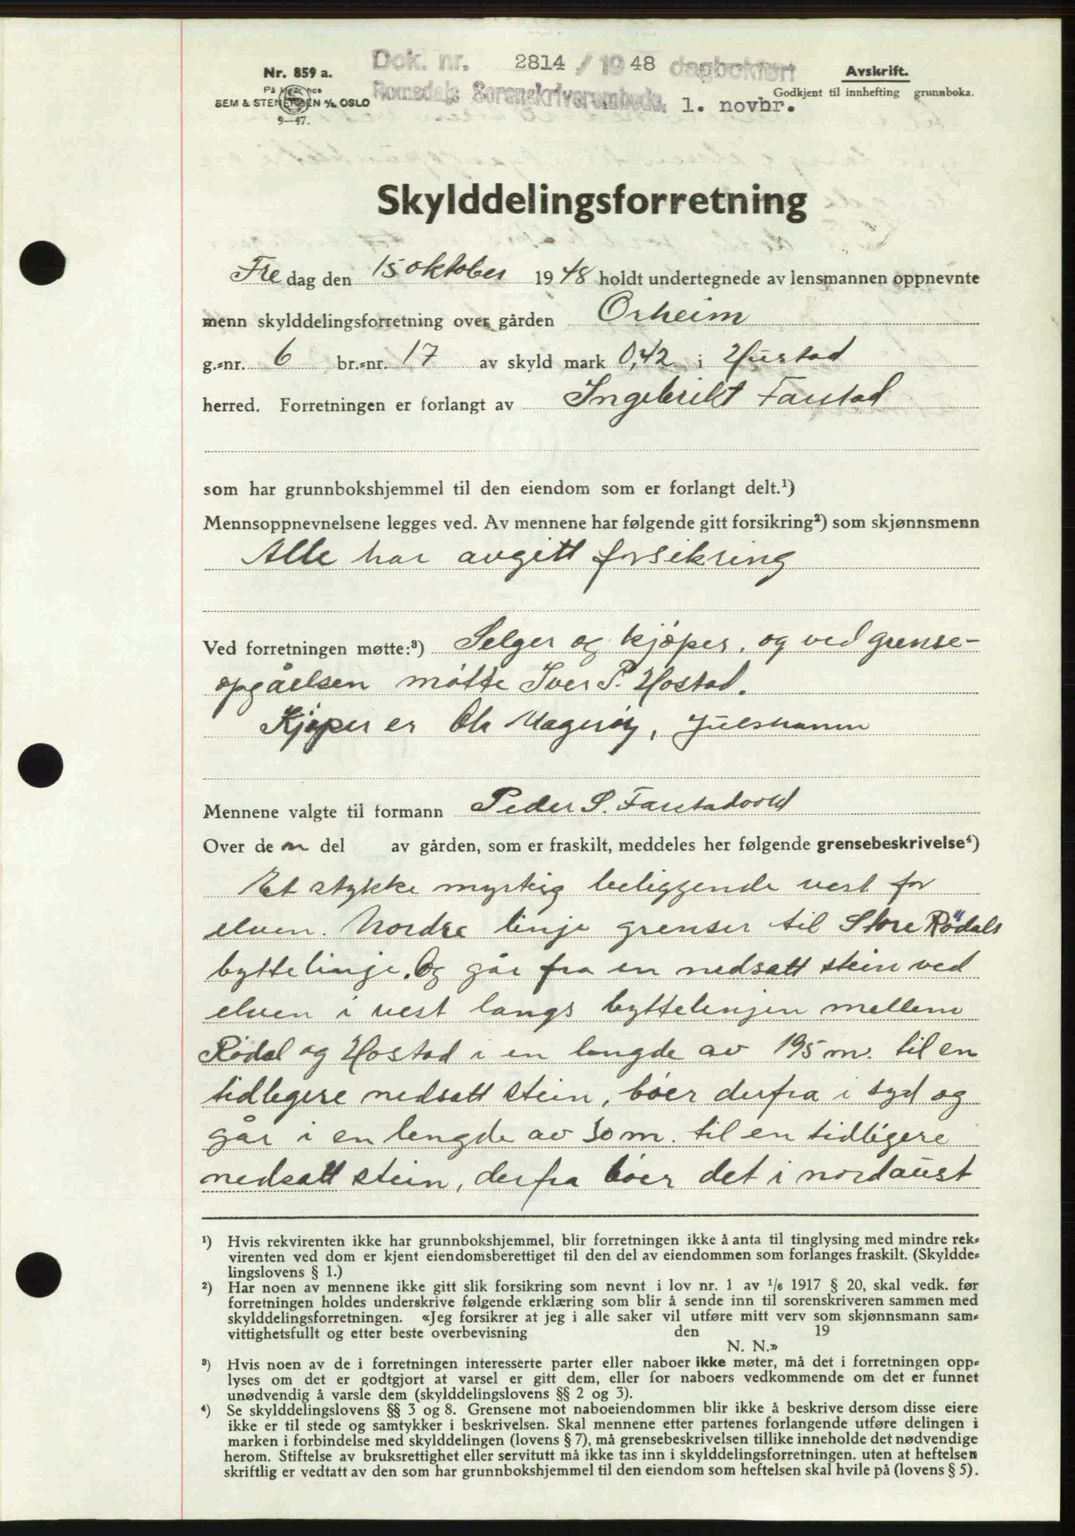 Nr. 859 a.
På lager hos
SEM & STENERSEN A/S OSLO
9—47.
Dok. nr. 2814 / 1948 dagbokført
Romsdals Sorenskriverembede, 1. novbr.
Avskrift.
Godkjent til innhefting grunnboka.
Skylddelingsforretning
Fredag den 15 oktober 1948 holdt undertegnede av lensmannen oppnevnte
menn skylddelingsforretning over gården Orheim
g.-nr. 6 br.-nr. 17 av skyld mark 0,42 i Hustad
herred. Forretningen er forlangt av Ingebrikt Farstad
som har grunnbokshjemmel til den eiendom som er forlangt delt.¹)
Mennsoppnevnelsene legges ved. Av mennene har følgende gitt forsikring²) som skjønnsmenn
Alle har avgitt forsikring
Ved forretningen møtte:³) Selger og kjøper, og ved grense-
opgåelsen møtte Iver P. Hostad.
Kjøper er Ole Magerøy, Julshamn
Mennene valgte til formann Peder S. Farstadvold
Over de n del av gården, som er fraskilt, meddeles her følgende grensebeskrivelse⁴)
Et stykke myrteig beliggende vest for
elven. Nordre linje grenser til Store Rødals
byttelinje. Og går fra en nedsatt stein ved
elven i vest langs byttelinjen mellem
Rødal og Hostad i en lengde av 195 m. til en
tidligere nedsatt stein, bøer derfra i syd og
går i en lengde av 30 m. til en tidligere
nedsatt stein, derfra bøer det i nordaust
¹) Hvis rekvirenten ikke har grunnbokshjemmel, blir forretningen ikke å anta til tinglysing med mindre rek-
virenten ved dom er kjent eiendomsberettiget til den del av eiendommen som forlanges fraskilt. (Skyldde-
lingslovens § 1.)
²) Har noen av mennene ikke gitt slik forsikring som nevnt i lov nr. 1 av 1/6 1917 § 20, skal vedk. før
forretningen holdes underskrive følgende erklæring som blir å sende inn til sorenskriveren sammen med
skylddelingsforretningen. «Jeg forsikrer at jeg i alle saker vil utføre mitt verv som skjønnsmann sam-
vittighetsfullt og etter beste overbevisning den 19
N. N.»
³) Hvis noen av de i forretningen interesserte parter eller naboer ikke møter, må det i forretningen opp-
lyses om det er godtgjort at varsel er gitt dem, eller for naboers vedkommende om det er funnet
unødvendig å varsle dem (skylddelingslovens §§ 2 og 3).
⁴) Se skylddelingslovens §§ 3 og 8. Grensene mot naboeiendommen blir ikke å beskrive dersom disse eiere
ikke er til stede og samtykker i beskrivelsen. Skal mennene etter partenes forlangende utføre delingen i
marken i forbindelse med skylddelingen (lovens § 7), må grensebeskrivelsen tillike inneholde det nødvendige
herom. Stiftelse av bruksrettighet eller servitutt må ikke tas inn i skylddelingsforretningen, uten at heftelsen
skriftlig er vedtatt av den som har grunnbokshjemmel til den eiendom som heftelsen skal hvile på (lovens § 5).